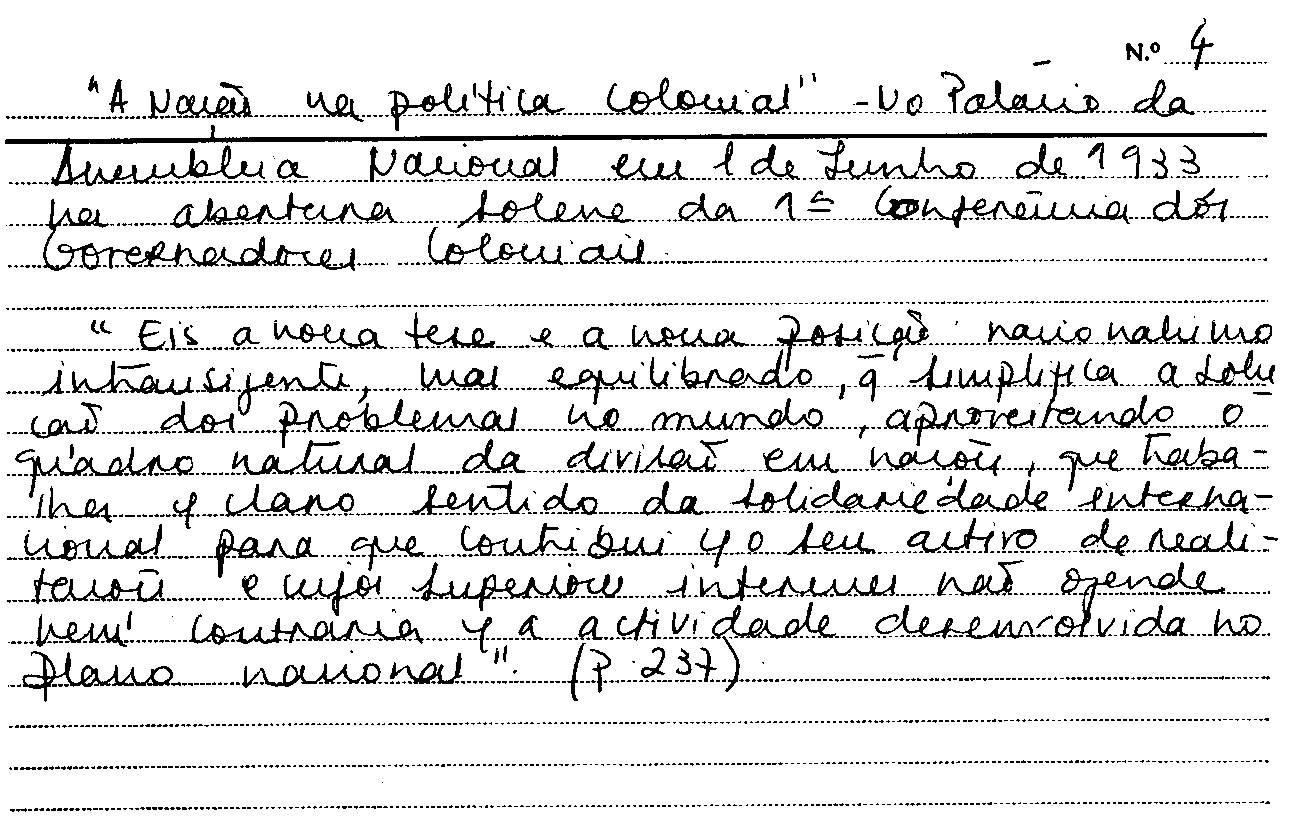 N.º 4
"A Nação na política colonial" - No Palácio da
Assembleia Nacional em 1 de Junho de 1933
na abertura solene da 1ª Conferência dos
Governadores Coloniais.
"Eis a nova tese e a nova posição: nacionalismo
intransigente, mas equilibrado, q̃ simplifica a solu
ção dos problemas no mundo, aproveitando o
quadro natural da divisão em nações, que traba-
lha c/ claro sentido da solidariedade interna-
cional para que contribui c/ o seu activo de reali-
zações e cujos superiores interesses não ofende
nem contraria c/ a actividade desenvolvida no
plano nacional". (p. 237)